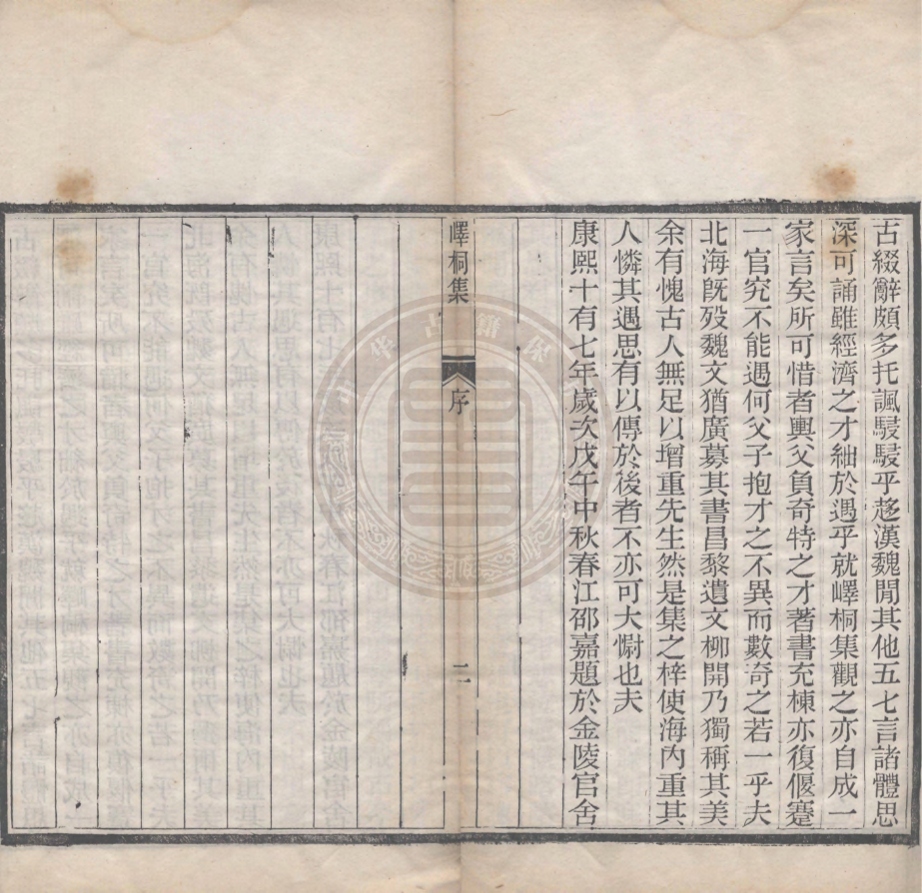 古綴辭頗多托諷駸駸乎趂漢魏閒其他五七言諸體思
深可誦雖經濟之才絀於遇乎就嶧桐集觀之亦自成一
家言矣所可惜者輿父負奇特之才著書充棟亦復偃蹇
一官究不能遇何父子抱才之不異而數奇之若一乎夫
北海旣歿魏文猶廣募其書昌黎遺文柳開乃獨稱其美
余有愧古人無足以增重先生然是集之梓使海內重其
人憐其遇思有以傳於後者不亦可大慰也夫
康熙十有七年歲次戊午中秋春江邵嘉題於金陵官舍
嶧桐集 序 二